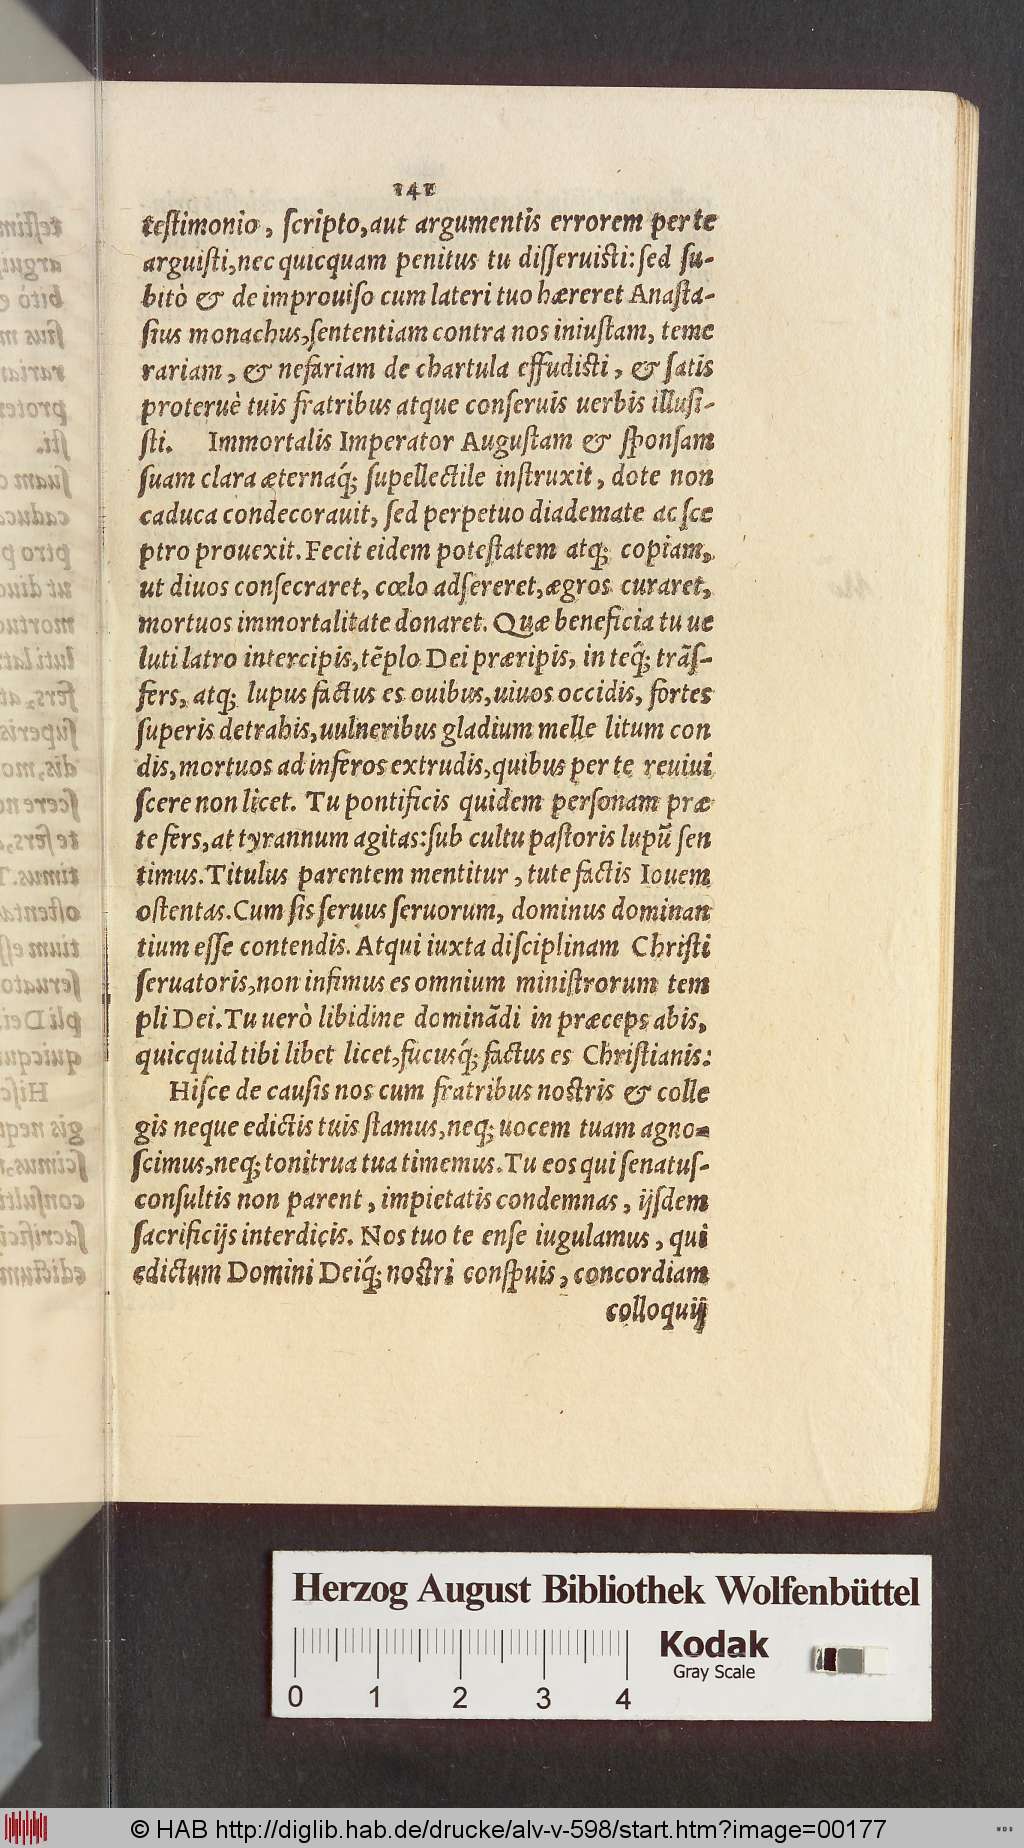 141
testimonio, scripto, aut argumentis errorem per te
arguisti, nec quicquam penitus tu disseruisti: sed su-
bitò & de improuiso cum lateri tuo hæreret Anasta-
sius monachus, sententiam contra nos iniustam, teme
rariam, & nefariam de chartula effudisti, & satis
proteruè tuis fratribus atque conseruis uerbis illusi-
sti. Immortalis Imperator Augustam & sponsam
suam clara æternaq́; supellectile instruxit, dote non
caduca condecorauit, sed perpetuo diademate ac sce
ptro prouexit. Fecit eidem potestatem atq; copiam,
ut diuos consecraret, cœlo adsereret, ægros curaret,
mortuos immortalitate donaret. Quæ beneficia tu ue
luti latro intercipis, tẽplo Dei præripis, in teq́; trãs-
fers, atq; lupus factus es ouibus, uiuos occidis, fortes
superis detrahis, uulneribus gladium melle litum con
dis, mortuos ad inferos extrudis, quibus per te reuiui
scere non licet. Tu pontificis quidem personam præ
te fers, at tyrannum agitas: sub cultu pastoris lupũ sen
timus. Titulus parentem mentitur, tute factis Iouem
ostentas. Cum sis seruus seruorum, dominus dominan
tium esse contendis. Atqui iuxta disciplinam Christi
seruatoris, non infimus es omnium ministrorum tem
pli Dei. Tu uerò libidine dominãdi in præceps abis,
quicquid tibi libet licet, fucusq́; factus es Christianis:
Hisce de causis nos cum fratribus nostris & colle
gis neque edictis tuis stamus, neq; uocem tuam agno-
scimus, neq; tonitrua tua timemus. Tu eos qui senatus-
consultis non parent, impietatis condemnas, ijsdem
sacrificijs interdicis. Nos tuo te ense iugulamus, qui
edictum Domini Deiq́; nostri conspuis, concordiam
colloquij
Herzog August Bibliothek Wolfenbüttel
0 1 2 3 4
Kodak
Gray Scale
© HAB http://diglib.hab.de/drucke/alv-v-598/start.htm?image=00177